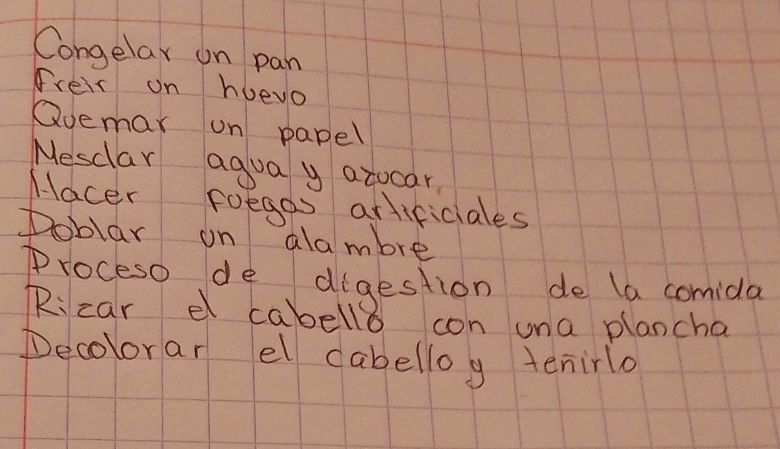 Congelar un pan
Freir un huevo
Quemar un papel
Mesclar agua y azucar.
Hacer fuegos artificiales
Doblar un alambre
Proceso de digestion de la comida
Rizar el cabello con una plancha
Decolorar el cabello y teñirlo